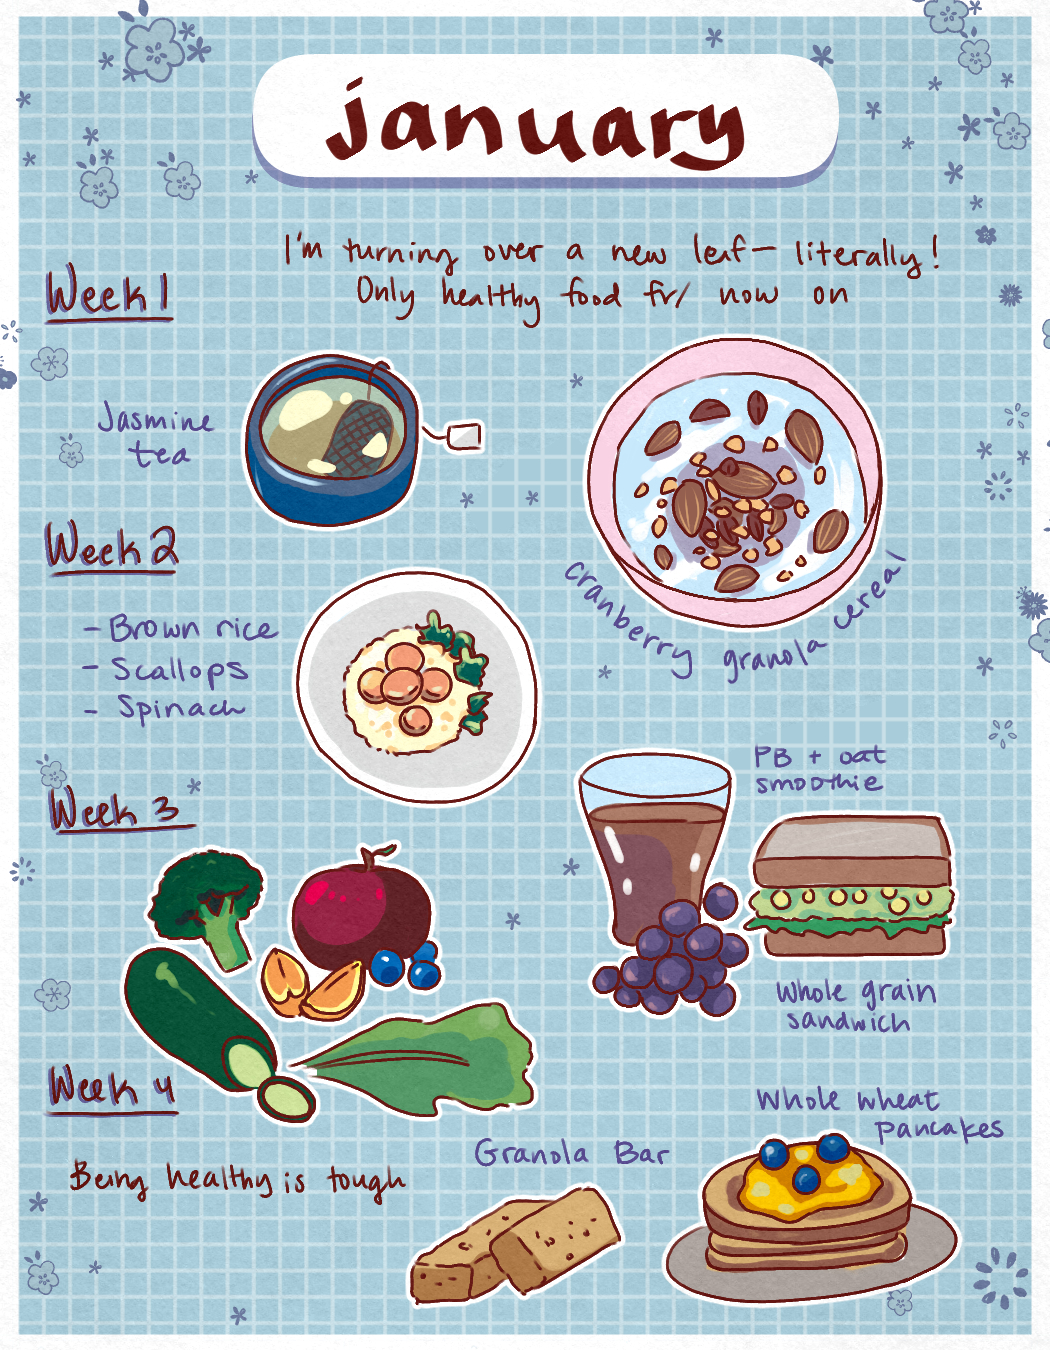 january
I'm turning over a new leaf— literally!
Only healthy food fr/ now on
Week 1
Jasmine
tea
cranberry granola cereal
Week 2
- Brown rice
- Scallops
- Spinach
Week 3
PB + oat
smoothie
Whole grain
sandwich
Week 4
Being healthy is tough
Granola Bar
Whole wheat
pancakes